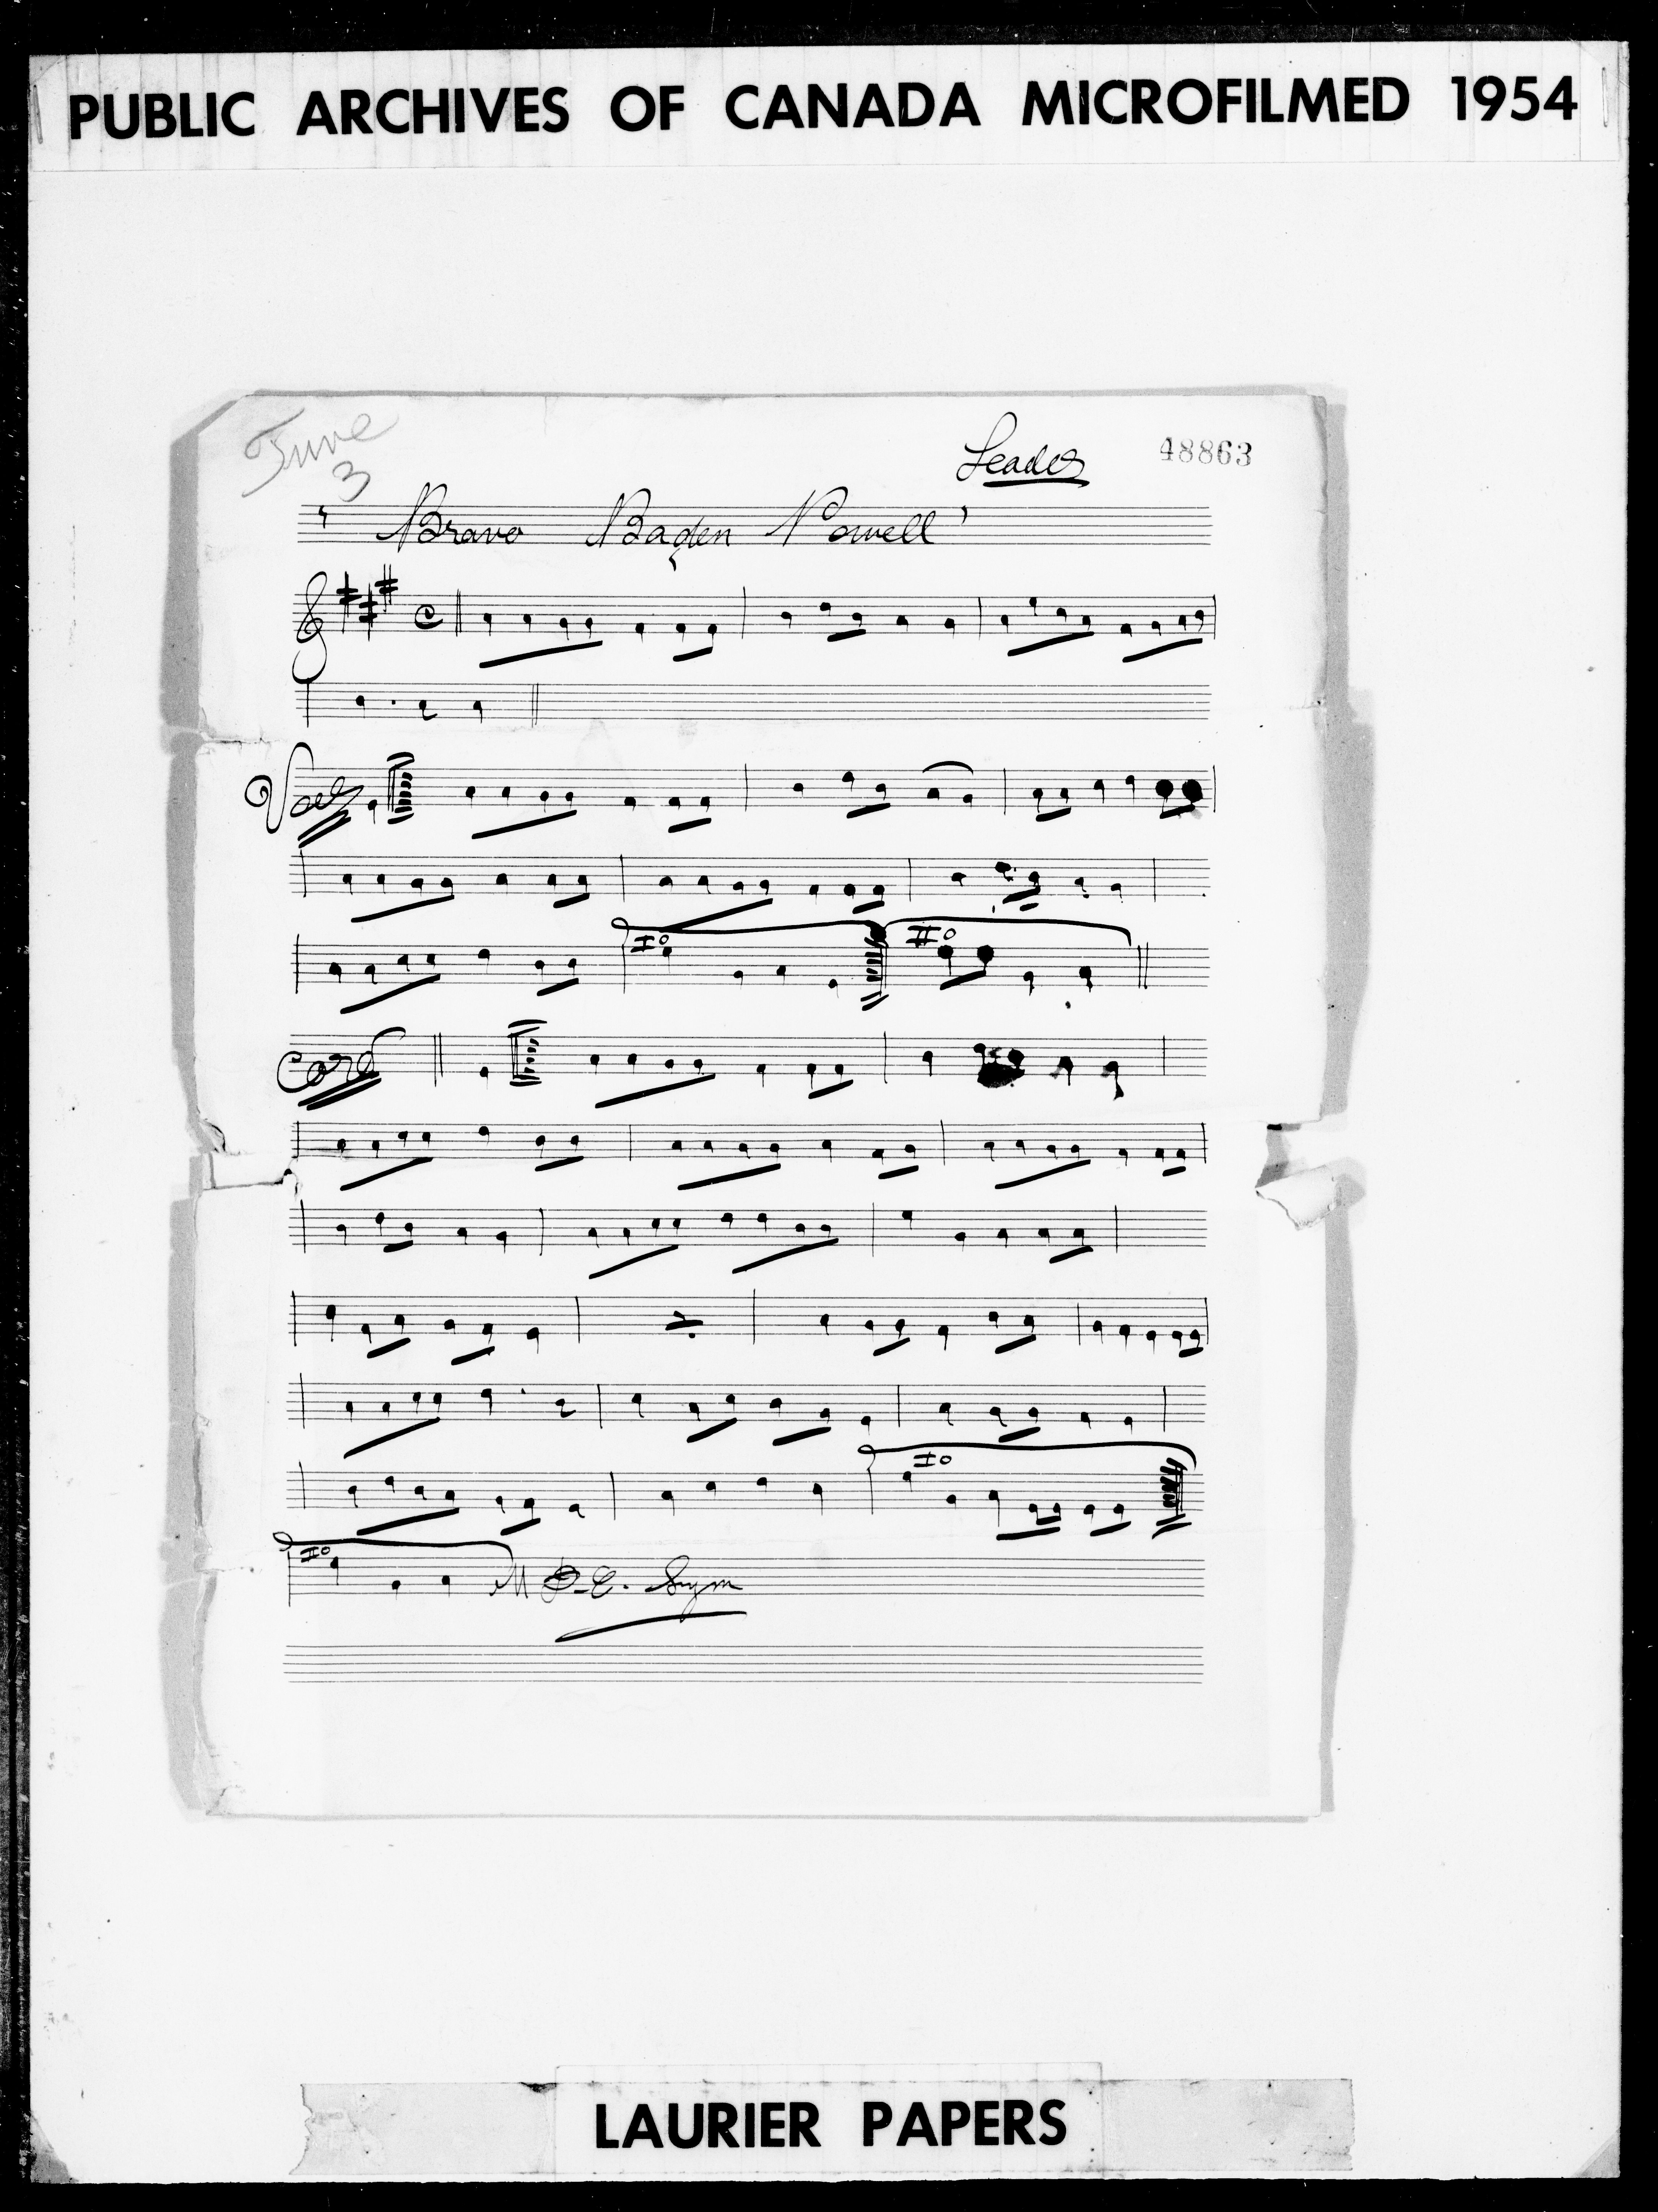 PUBLIC ARCHIVES OF CANADA MICROFILMED 1954
June
3
Leader
48863
' Bravo Baden Powell '
C
Voce
Io
IIo
Coro
Io
IIo
D.C. Sym
LAURIER PAPERS